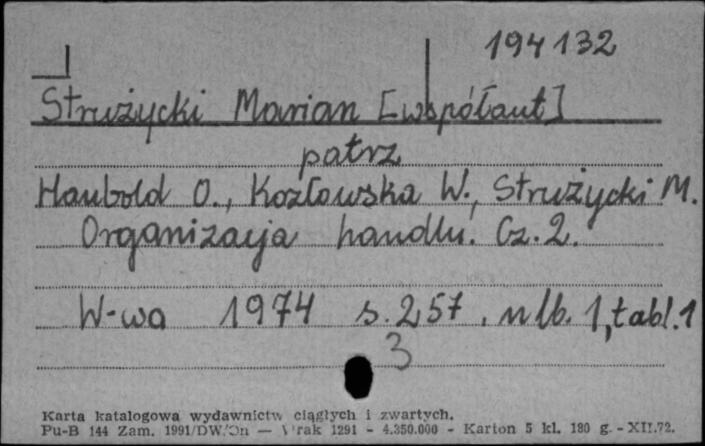 194132
Strużycki Marian [współaut]
patrz
Haubold O., Kozłowska W., Strużycki M.
Organizacja handlu. Cz. 2.
W-wa 1974 s. 257, nlb. 1, tabl. 1
3
Karta katalogowa wydawnictw ciągłych i zwartych.
Pu-B 144 Zam. 1991/DW/On — Vrak 1291 - 4.350.000 - Karton 5 kl. 180 g. - XII.72.